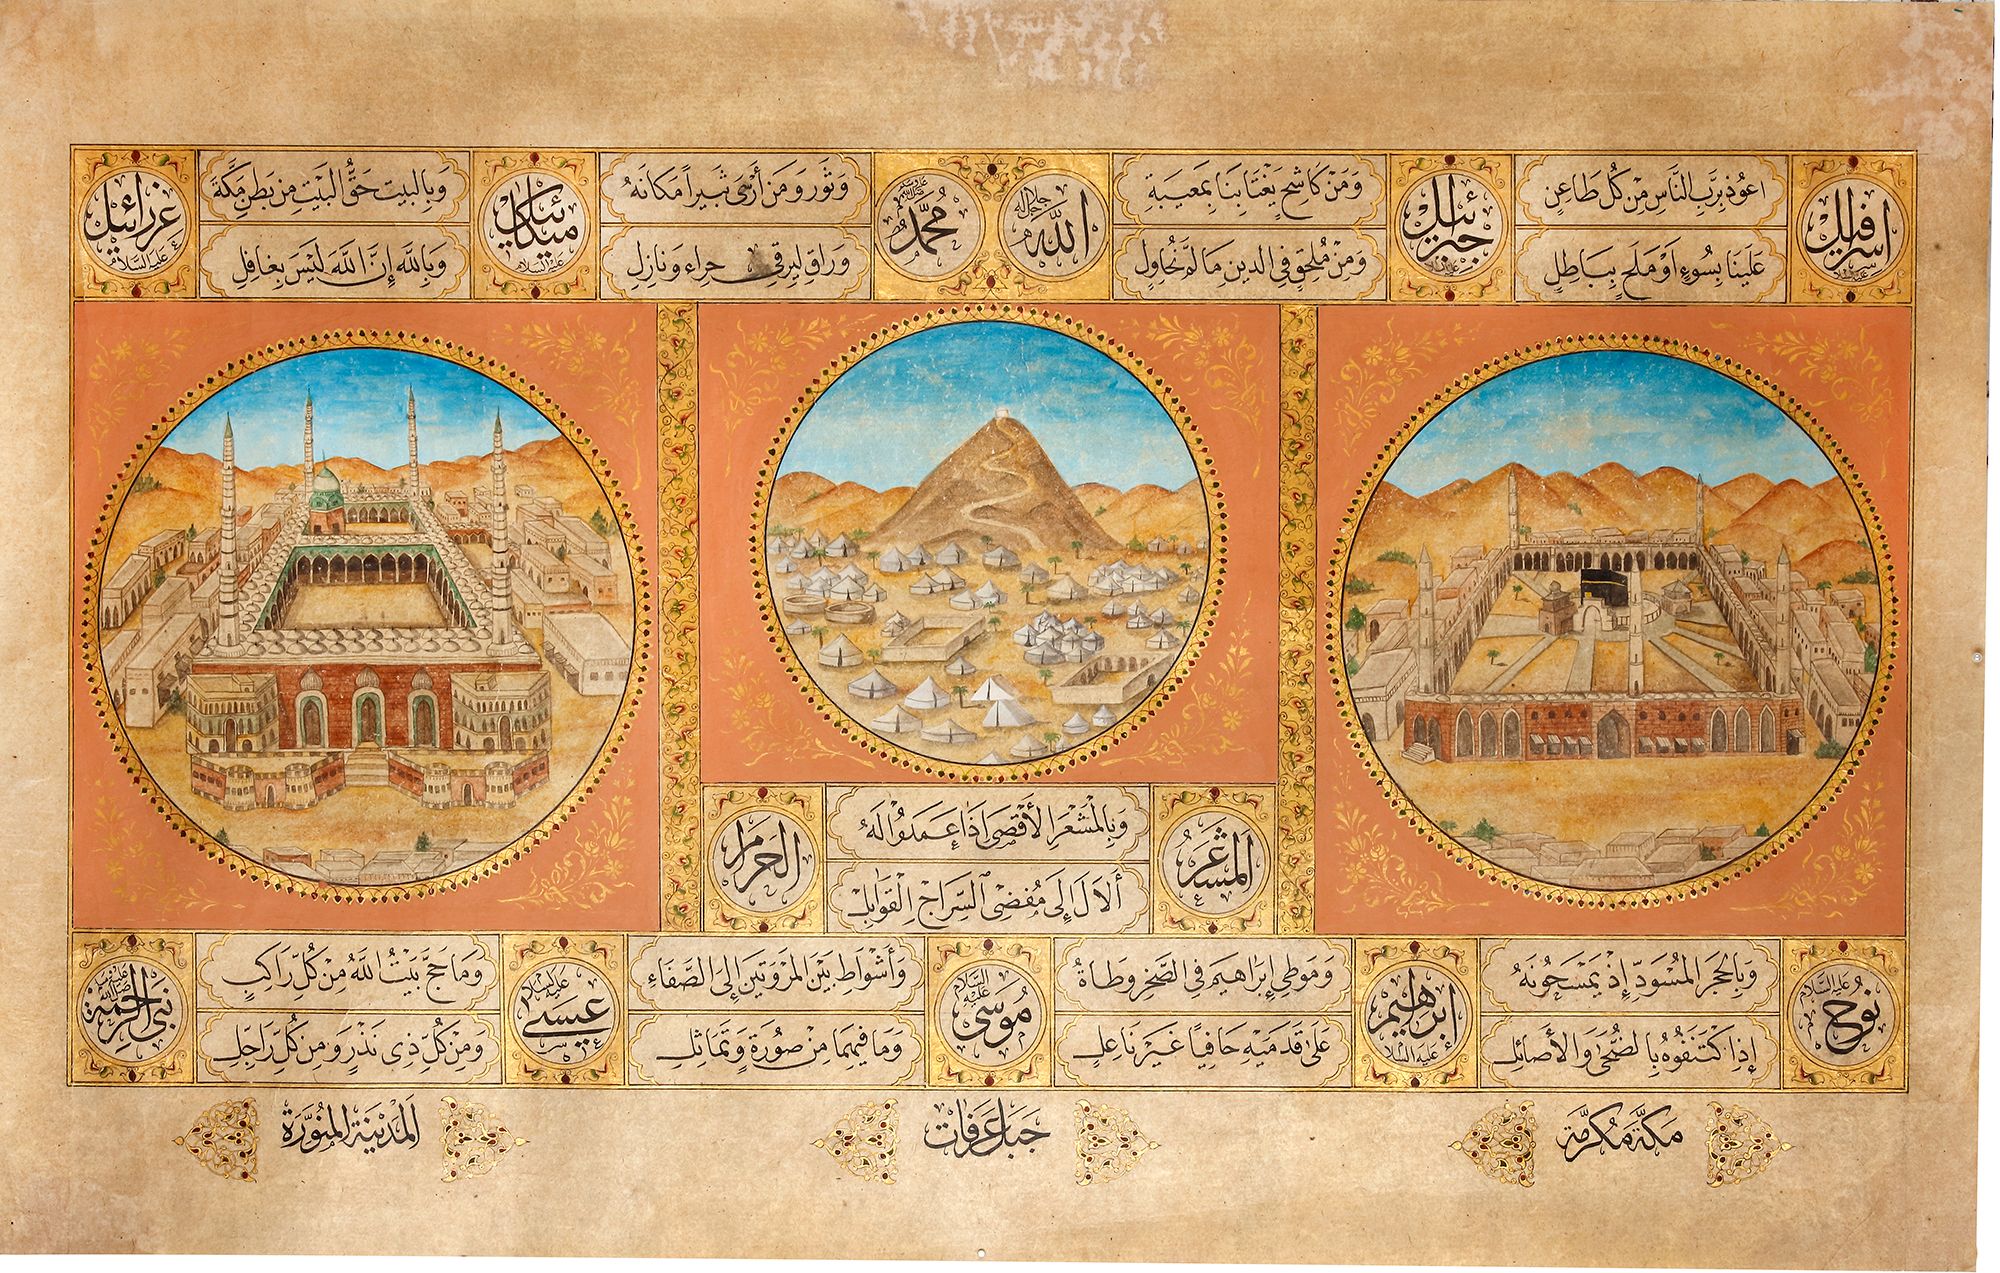 اسرافيل عليه السلام
اَعُوذُ بِرَبِّ النَّاسِ مِنْ كُلِّ طَاعِنٍ
عَلَيْنَا بِسُوءٍ اَوْ مَلَحٍ بِبَاطِلٍ
جبرئيل عليه السلام
وَمَنْ كَاشِحٍ يَغْتَابُنَا بِمَعِيبَةٍ
وَمَنْ مُلْحِقٍ فِي الدِّينِ مَا لَمْ نُحَاوِلِ
الله جل جلاله
محمد
وَثَوْرٍ وَمَنْ أَرْسَى ثَبِيراً مَكَانَهُ
وَرَاقٍ لِيَرْقَى حِرَاءَ وَنَازِلِ
ميكائيل عليه السلام
وَبِالْبَيْتِ حَقُّ الْبَيْتِ مِنْ بَطْنِ مَكَّةَ
وَبِاللَّهِ إِنَّ اللَّهَ لَيْسَ بِغَافِلِ
عزرائيل عليه السلام
المشعر
وَبِالْمَشْعَرِ الْأَقْصَى إِذَا عَمَدُوا لَهُ
أَلَالَ إِلَى مُفْضَى السِّرَاجِ الْقَوَابِلِ
الحرام
نوح عليه السلام
وَبِالْحَجَرِ الْمُسْوَدِّ إِذْ يَمْسَحُونَهُ
إِذَا كْتَنَفُوهُ بِالضُّحَى وَالْأَصَائِلِ
ابراهيم عليه السلام
وَمَوْطِي إِبْرَاهِيمَ فِي الصَّخْرِ وَطَاةً
عَلَى قَدَمَيْهِ حَافِيًا غَيْرَ نَاعِلِ
موسى عليه السلام
وَأَشْوَاطَ بَيْنَ الْمَرْوَتَيْنِ إِلَى الصَّفَاءِ
وَمَا فِيهِمَا مِنْ صُورَةٍ وَتَمَاثِلِ
عيسى عليه السلام
وَمَا حَجَّ بَيْتُ اللَّهِ مِنْ كُلِّ رَاكِبٍ
وَمِنْ كُلِّ ذِي نَذْرٍ وَمِنْ كُلِّ رَاجِلِ
نبي الرحمة
مَكَّة مُكَرَّمَة
جَبَل عَرَفَات
اَلْمَدِينَة الْمُنَوَّرَة